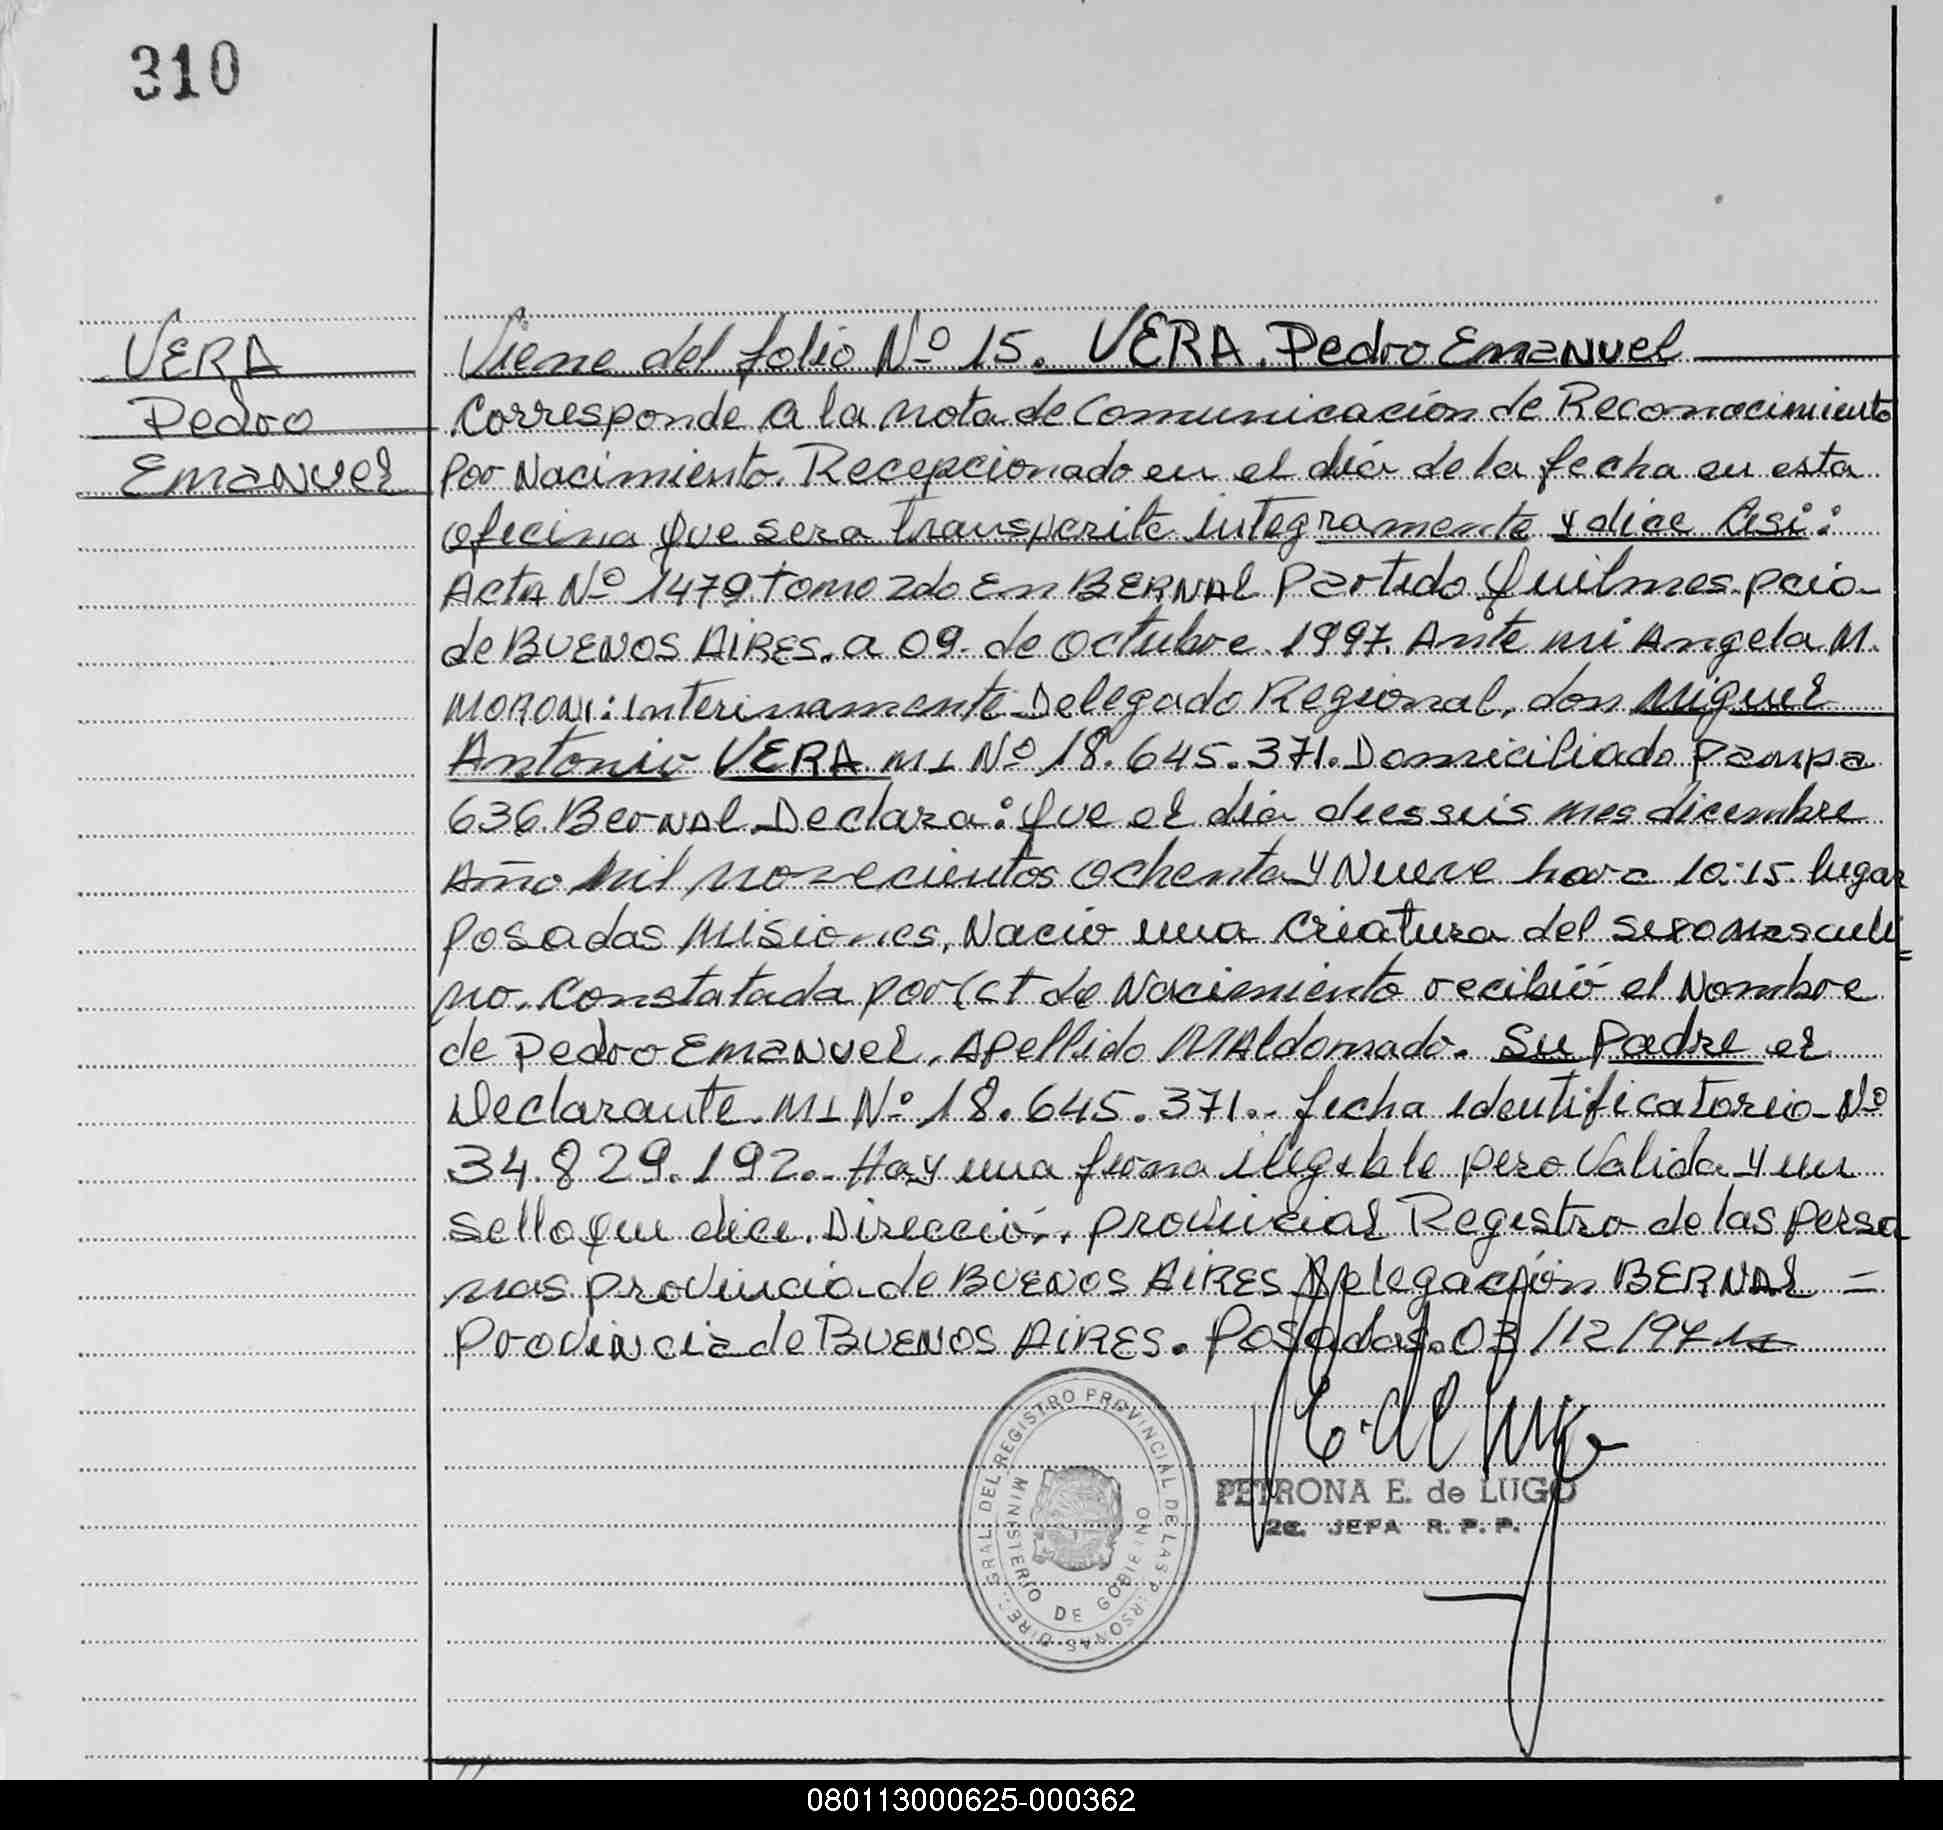 310
VERA
Pedro
Emanuel
Viene del folio Nº 15. VERA. Pedro Emanuel
Corresponde a la nota de Comunicación de Reconocimiento
por Nacimiento. Recepcionado en el día de la fecha en esta
oficina que sera transcrito integramente y dice Asi:
Acta Nº 1479 tomo 2do En BERNAL Partido Quilmes. pcia
de BUENOS AIRES. a 09. de octubre 1997. Ante mi Angela M.
MORONI: interinamente Delegado Regional, don Miguel
Antonio VERA MI Nº 18.645.371. Domiciliado Pampa
636. Bernal Declara: que el dia diesseis mes dicembre
Año mil novecientos ochenta y Nueve hora 10:15. lugar
Posadas Misiones, Nacio una criatura del sexo masculi
no. Constatada por Cct de Nacimiento recibió el Nombre
de Pedro Emanuel. Apellido MAldonado. Su Padre el
Declarante. MI Nº 18.645.371.. ficha identificatorio Nº
34.829.192.. Hay una firma ilegible pero Valida y un
sello que dice. Dirección. provincial Registro de las perso
nas provincia de BUENOS AIRES Delegación BERNAL =
Provincia de BUENOS AIRES. Posadas. 03/12/97
PETRONA E. de LUGO
2a. JEFA R. P. P.
DIREC. GRAL. DEL REGISTRO PROVINCIAL DE LAS PERSONAS
MINISTERIO DE GOBIERNO
080113000625-000362